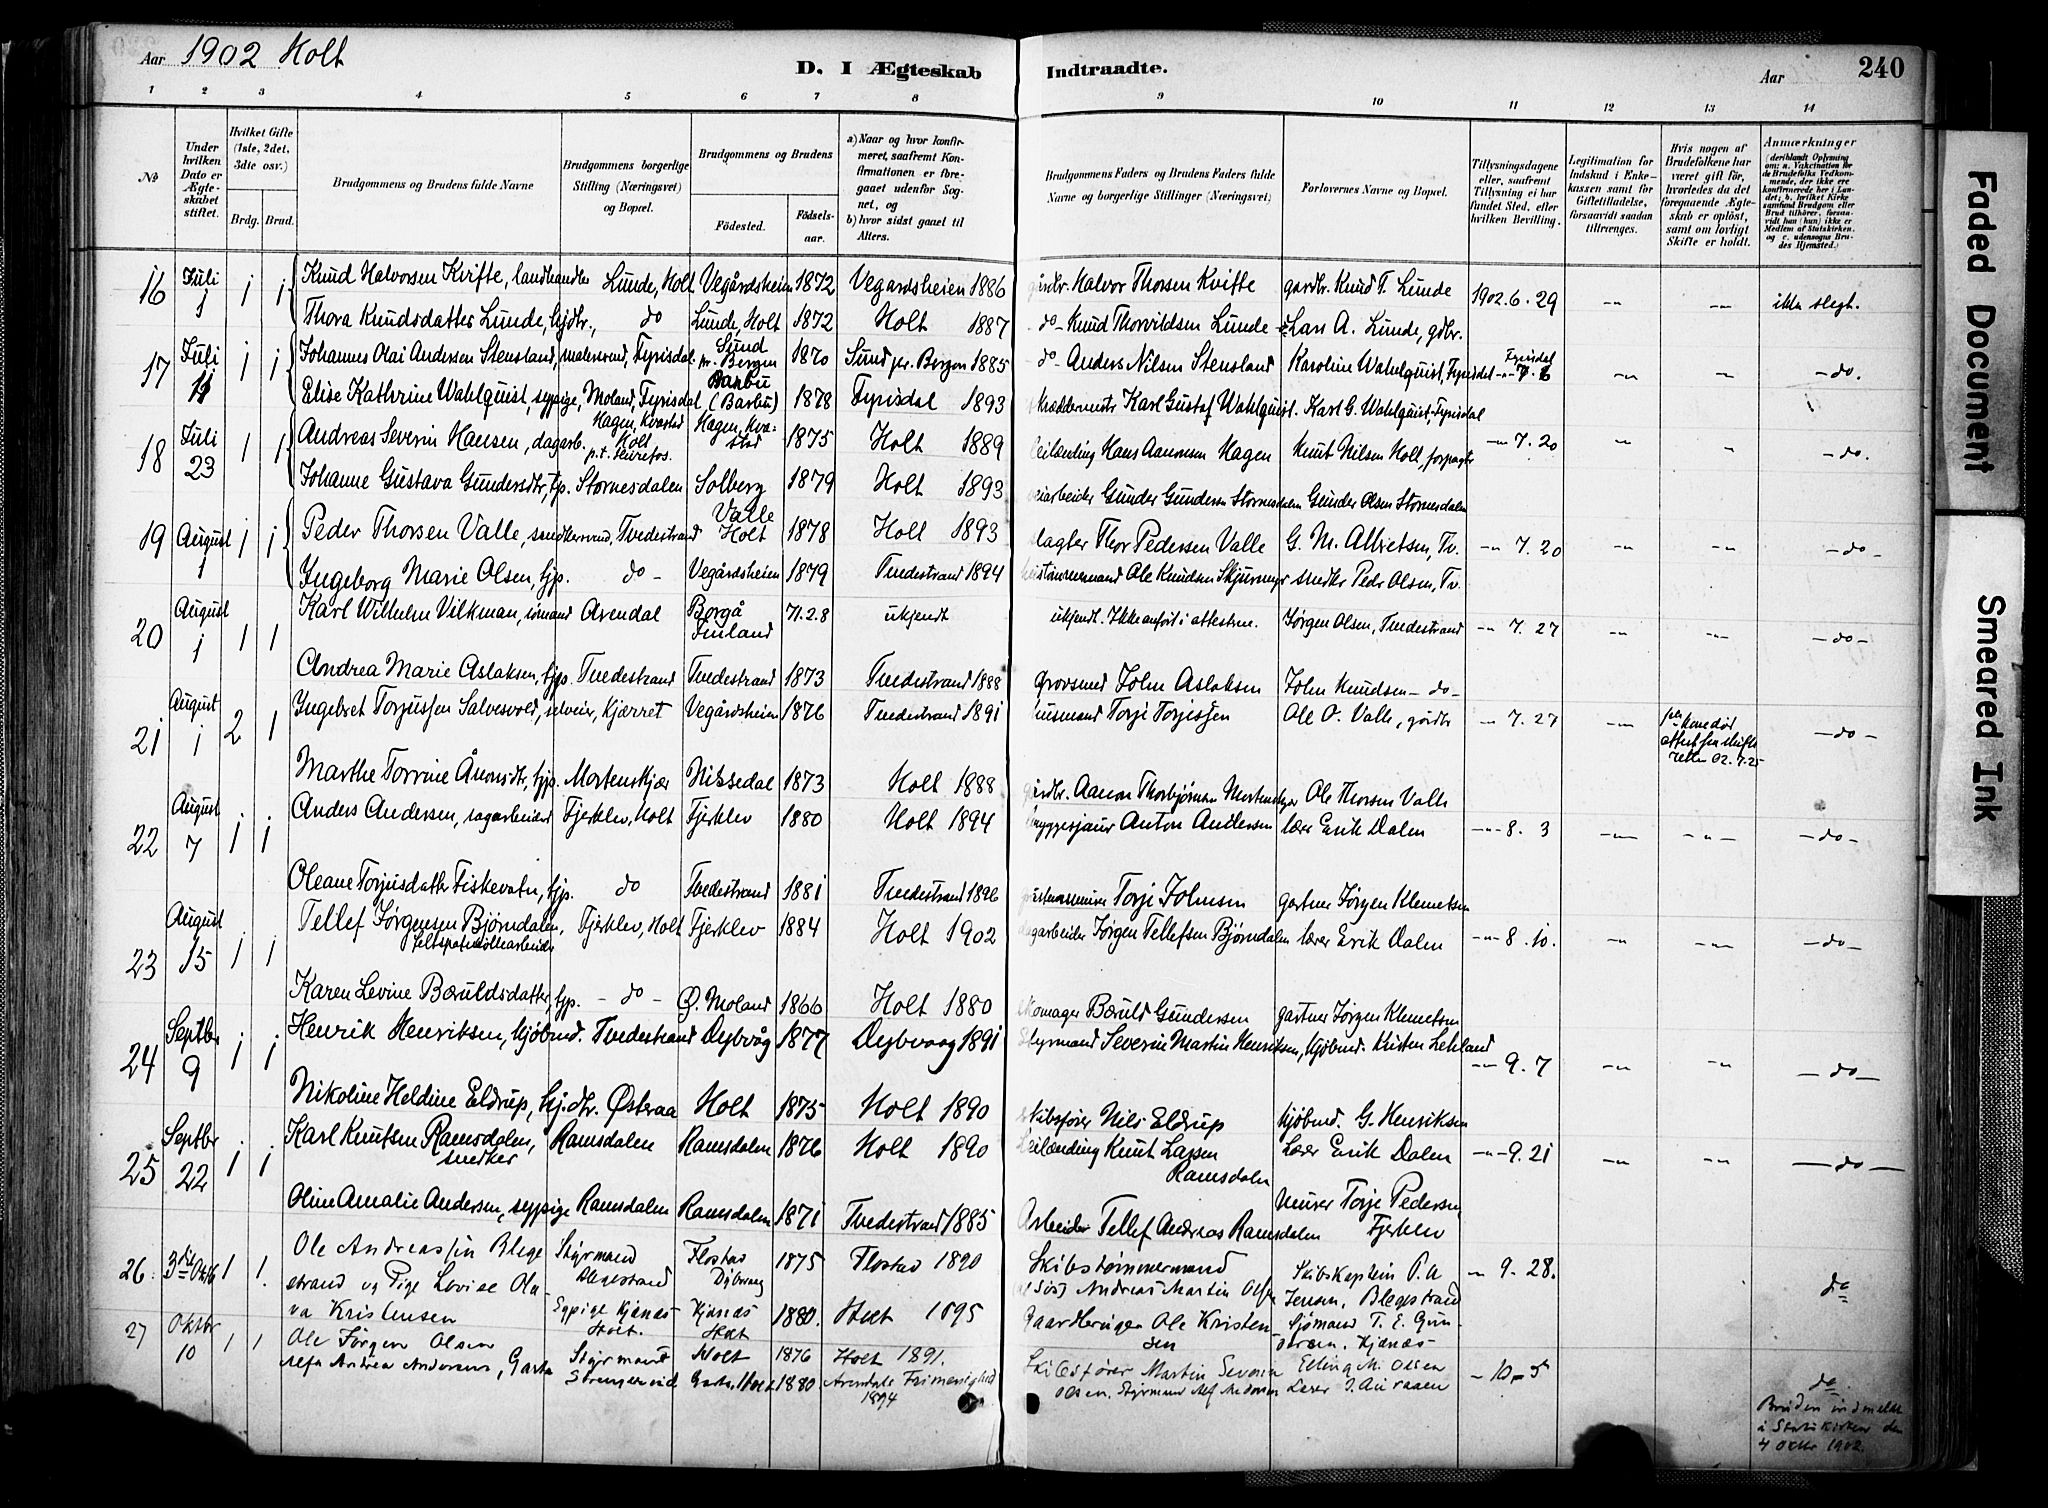 Aar 1902 Holt
D. I Ægteskab Indtraadte.
Aar
240
1 2 3 4 5 6 7 8 9 10 11 12 13 14
No
Under hvilken Dato er Ægteskabet stiftet.
Hvilket Gifte (1ste, 2det, 3dte osv.)
Brdg. Brud.
Brudgommens og Brudens fulde Navne
Brudgommens borgerlige Stilling (Næringsvei) og Bopæl.
Brudgommens og Brudens
Fødested. Fødselsaar.
a) Naar og hvor konfirmeret, saafremt Konfirmationen er foregaaet udenfor Sognet, og
b) hvor sidst gaaet til Alters.
Brudgommens Faders og Brudens Faders fulde Navne og borgerlige Stillinger (Næringsvei)
Forlovernes Navne og Bopæl.
Tillysningsdagene eller, saafremt Tillysning ei har fundet Sted, efter hvilken Bevilling.
Legitimation for Indskud i Enkekassen samt for Giftetilladelse, forsaavidt saadan tiltrænges.
Hvis nogen af Brudefolkene har været gift før, hvorledes da det foregaaende Ægteskab er opløst, samt om lovligt Skifte er holdt.
Anmærkninger
16 Juli 1 1 1 Knud Halvorsen Kvifte, landhandler Lunde, Holt Vegårdsheien 1872 Vegardsheien 1886 gårdbr. Halvor Thorsen Kvifte gardbr. Knud T. Lunde 1902.6.29 -"- -"- ikke slegt.
Thora Knudsdatter Lunde, gjdtr., do Lunde, Holt 1872 Holt 1887 -do- Knud Thorvildsen Lunde Lars A. Lunde, gdbr.
17 Juli 11 1 1 Johannes Olai Andersen Stensland, malersvend, Fyrisdal Sund pr. Bergen 1870 Sund pr. Bergen 1885 do- Anders Nilsen Stensland Karoline Wahlquist, Fyrisdal Fyrisdal -"-7.6 -"- -"- -do.
Elise Kathrine Wahlquist, sypige, Moland, Fyrisdal Barbu (Barbu) 1878 Fyrisdal 1893 skræddermestr Karl Gustaf Wahlquist. Karl G. Wahlquist, Fyrisdal
18 Juli 23 1 1 Andreas Severin Hansen, dagarb. Hagen, Kvastad Holt p.t. Hagen, Kvastad 1875 Holt 1889 leilending Hans Aanonsen Hagen Knut Nilsen Holt, forpagtr -"-7.20 -"- -"- -do.
Johanne Gustava Gundersdtr, tjp. Stornesdalen Solberg 1879 Holt 1893 veiarbeider Gunder Gundersen Stornesdalen Gunder Olsen Stornesdalen
19 August 1 1 1 Peder Thorsen Valle, snedkersvend, Tvedestrand Valle Holt 1878 Holt 1893 slagter Thor Pedersen Valle G. M. Albretsen, Tv. -"-7.20 -"- -"- -do-
Ingeborg Marie Olsen, tjp. do- Vegårdsheien 1879 Tvedestrand 1894 Ole Knudsen Skjurmyr snedkr Pedr Olsen, Tv.
20 August 1 1 1 Karl Wilhelm Vilkman, sømand Arendal Borgå Finland 71.2.8 ukjendt ukjendt. Ikke anført i attesten. Jørgen Olsen, Tvedestrand -"-7.27 -"- -"- -do-
Andrea Marie Aslaksen, tjp. Tvedestrand Tvedestrand 1873 Tvedestrand 1888 grovsmed John Aslaksen John Knudsen -do-
21 August 1 2 1 Ingebret Torjussen Salvesvold, selveier, Kjærret Vegårdsheien 1876 Tvedestrand 1891 husmand Torje Torjussen Ole O. Valle, gårdbr -"-7.27 -"- 1ste kone død attest fra skifteretten 02.7.25 -do-
Marthe Torrine Ånonsdtr, tjp. Mortenskjær Nissedal 1873 Holt 1888 gårdbr. Aanon Thorbjørnsen Mortenskjær Ole Thorsen Valle
22 August 7 1 1 Anders Andersen, sagarbeider Fjerklev, Holt Fjerklev 1880 Holt 1894 bryggesjauer Anton Andersen lærer Erik Dalen -"-8.3 -"- -"- -do-
Oleane Torjusdatter Fiskevatn, tjp. do Tvedestrand 1881 Tvedestrand 1896 Torje Johnsen gartner Jørgen Klemetsen
23 August 15 1 1 Tellef Jørgensen Bjørndalen, feltspatmøllearbeider Fjerklev, Holt Fjerklev 1884 Holt 1902 dagarbeider Jørgen Tellefsen Bjørndalen lærer Erik Dalen -"-8.10. -"- -"- -do-
Karen Levine Bæruldsdatter, tjp. -do- Ø. Moland 1866 Holt 1880 skomager Bæruld Gundersen gartner Jørgen Klemetsen
24 Septbr 9 1 1 Henrik Henriksen, kjøbmd. Tvedestrand Dybvåg 1877 Dybvaag 1891 Styrmand Severin Martin Henriksen, kjøbmd. Kristen Lehland -"-9.7 -"- -"- -do-
Nikoline Heldine Eldrup, hj.dtr. Østeraa Holt 1875 Holt 1890 skibsfører Nils Eldrup kjøbmd. G. Henriksen
25 Septbr 22 1 1 Karl Knutsen Ramsdalen, snedker Ramsdalen Ramsdalen 1876 Holt 1890 Leilænding Knut Larsen Ramsdalen Lærer Erik Dalen -"-9.21 -"- -"- -do-
Oline Amalie Andersen, sypige Ramsdalen Ramsdalen 1871 Tvedestrand 1885 Arbeider Tellef Andreas Ramsdalen Murer Torje Pedersen, Fjerklev
26. 3die Oktb 1 1. Ole Andreassen Blegestrand og Pige Lovise Olava Kristensen Styrmand Blegestrand Flostad Dybvaag 1875 Flostad 1890 Skibstømmermand Andreas Martin Olsen Skibskaptein P. A Jensen, Blegestrand -"-9.28. do
Sypige Kjenæs Holt. Kjenæs Holt 1880. Holt 1895 Gaardbruger Ole Kristensen Sjømand T. E. Gundersen, Kjenæs
27 Oktbr 10 1 1 Ole Jørgen Olsen Styrmand Holt 1876 Holt 1891. Skibsfører Martin Severin Olsen. Elling M. Olsen -10-5 do.
Alfa Andrea Andersen, Garta Garta, Holt 1880 Arendals Frimenighed 1894 Styrmand Alf Andersen Lærer J. Auraaen
Bruden indmeldt i Statskirken den 4 Oktbr 1902.
Faded Document
Smeared Ink